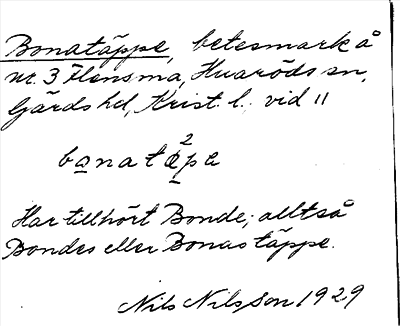 Bonatäppe, betesmark å
nr. 3 Flensma, Huaröds sn,
Gärds hd, Krist. l. vid 11
bonatæ²pe
Har tillhört Bonde; alltså
Bondes eller Bonas täppe.
Nils Nilsson 1929